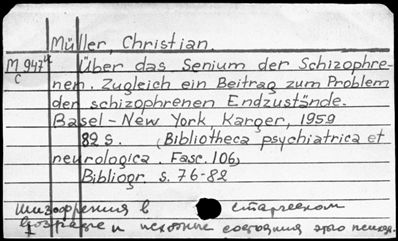 Müller, Christian.
M 947 4 Über das Senium der Schizophre-
C nen. Zugleich ein Beitrag zum Problem
der schizophrenen Endzustände.
Basel-New York, Karger, 1959
82 S. (Bibliotheca psychiatrica et
neurologica. Fasc. 106)
Bibliogr. s. 76-82
шизофрения в старческом
возрасте и исходные состояния этого